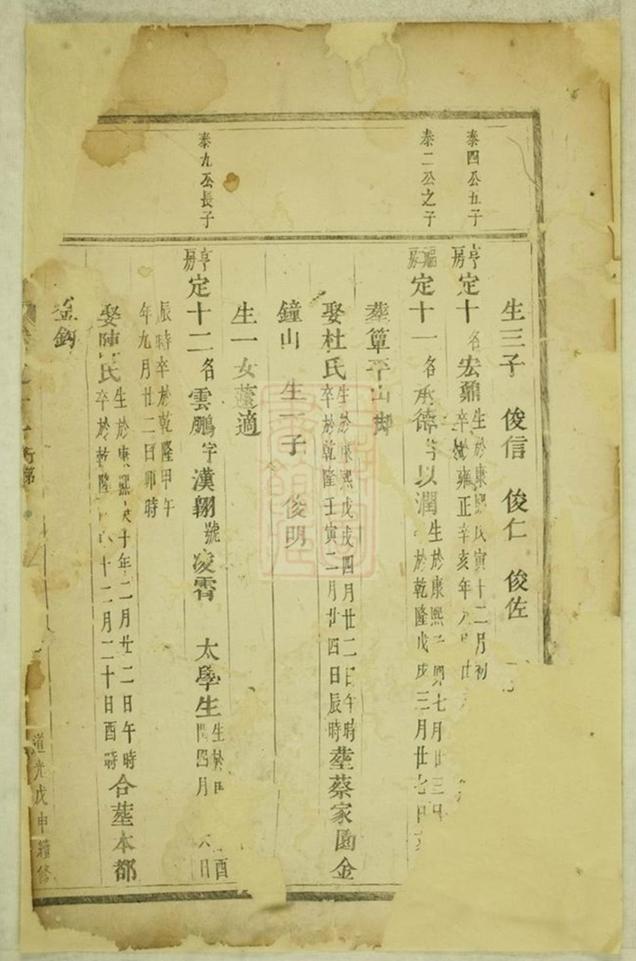 生三子 俊信 俊仁 俊佐
泰四公五子
亨房定十 名宏鼐 生於康熙戊寅十二月初
卒於雍正辛亥年八月廿
泰二公之子
福房定十一 名承德 字以潤 生於康熙 卯七月廿三日
於乾隆戊戌三月廿七日
葬簟平山脚
娶杜氏 生於康熙戊戌四月廿二日午時
卒於乾隆壬寅二月廿四日辰時 葬蔡家園金
鐘山 生一子 俊明
生一女 適
泰九公長子
亨房定十二 名雲鵬 字漢翱 號凌霄 太學生 生於
酉四月 六日
辰時卒於乾隆甲午
年九月廿二日卯時
娶陳氏 生於康熙 十年二月廿二日午時
卒於乾隆 十二月二十日酉時 合葬本都
金鈎
道光戊申續修